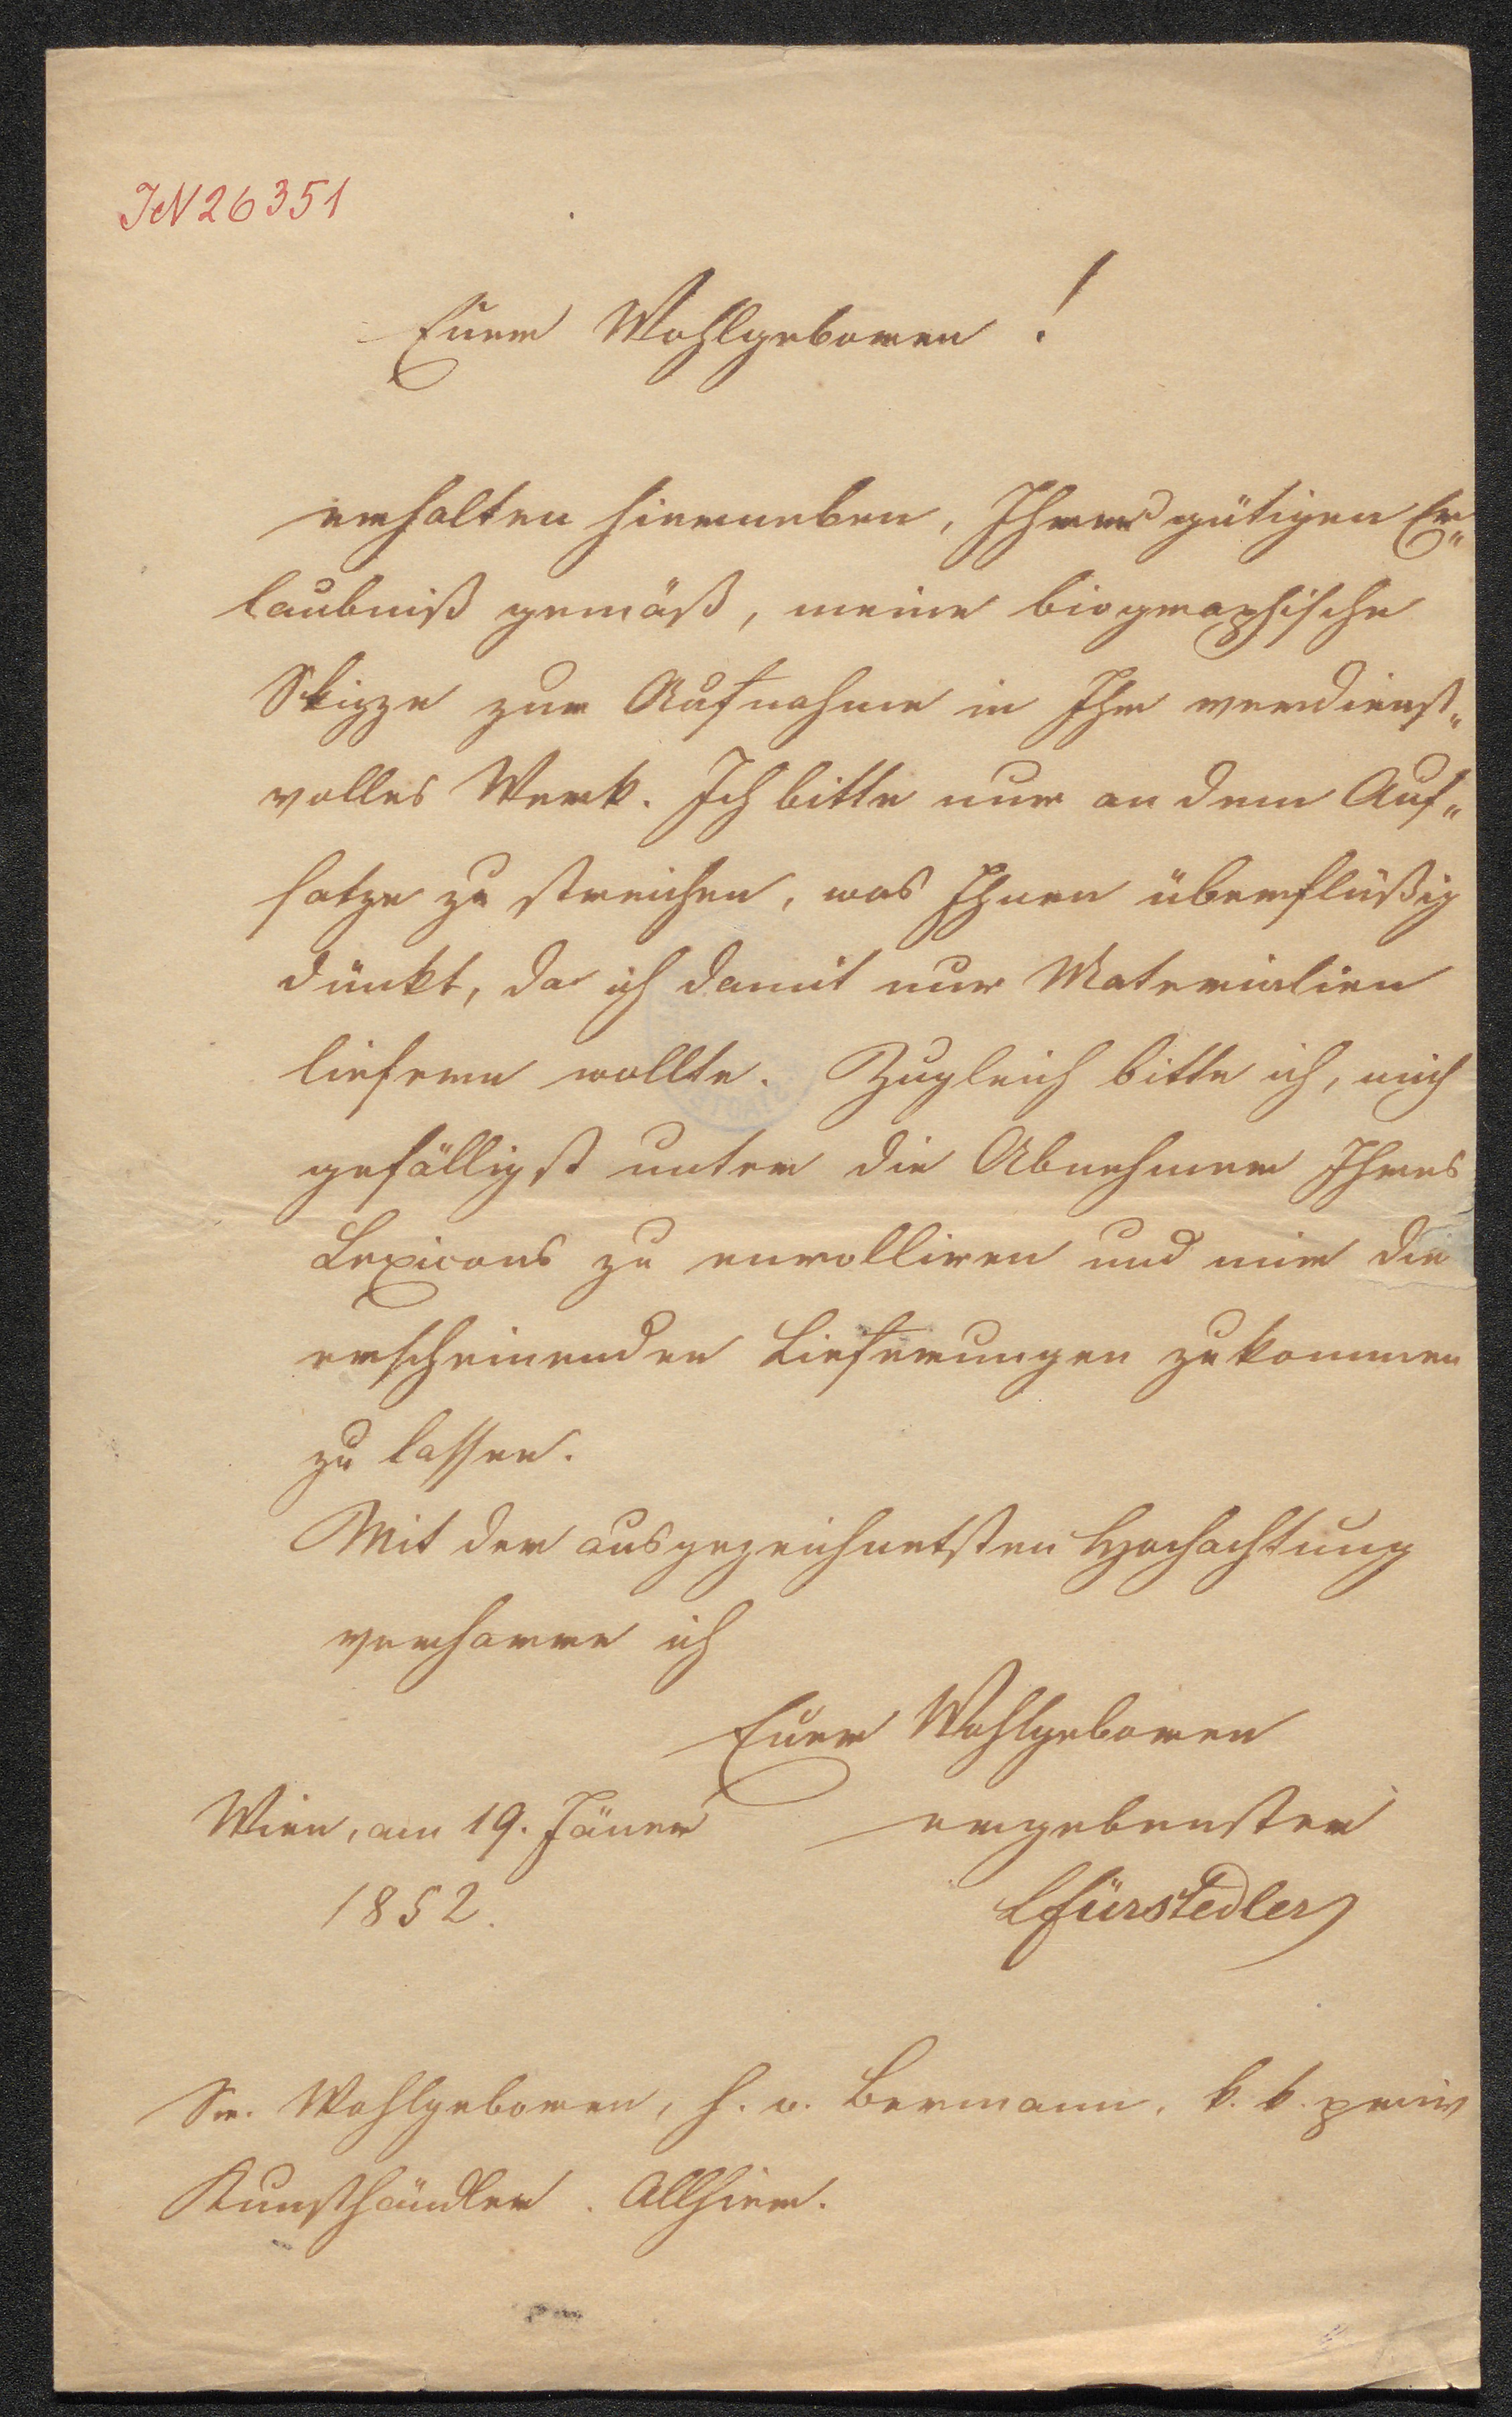 IN 26351
Euer Wohlgeboren!
erhalten hierneben, Ihrer gütigen Er„
laubniß gemäß, meine biographische
Skizze zur Aufnahme in Ihr verdienst„
volles Werk. Ich bitte nur an dem Auf„
satze zu streichen, was Ihnen überflüßig
dünkt, da ich damit nur Materialien
liefern wollte. Zugleich bitte ich, mich
gefälligst unter die Abnehmer Ihres
Lexicons zu enrolliren und mir die
erscheinenden Lieferungen zukommen
zu lassen.
Mit der ausgezeichnetsten Hochachtung
verharre ich
Euer Wohlgeboren
Wien, am 19. Jäner ergebenster
1852. LFürstedler
Sr. Wohlgeboren, H. v. Bermann, k. k. priv
Kunsthändler. Allhier.